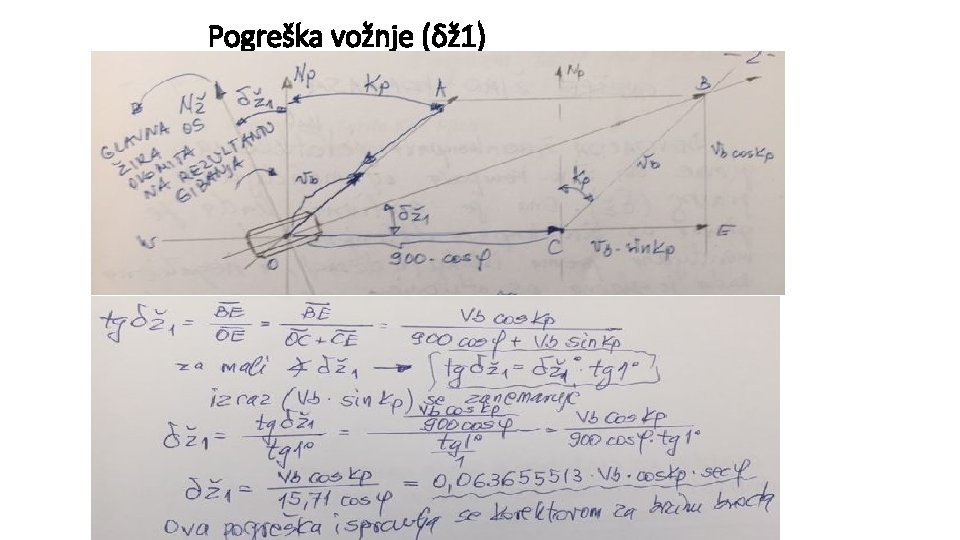 Pogreška vožnje (δž1)
Nž
δž1
Np
Kp
A
Np
- Z -
B
GLAVNA OS
ŽIRA
OKOMITA
NA REZULTANTU
GIBANJA
Vb
Vb
Kp
Vb cosKp
δž1
W
O
900 · cosφ
C
Vb · sinKp
E
tg δž1 = BE / OE = BE / OC + CE = Vb cos Kp / 900 cosφ + Vb sin Kp
za mali ∡ δž1 → tg δž1 = δž1° · tg1°
izraz (Vb · sin Kp) se zanemaruje
δž1 = tg δž1 / tg1° = Vb cos Kp / 900 cosφ / tg1° / 1 = Vb cos Kp / 900 cosφ · tg1°
δž1 = Vb cos Kp / 15,71 cosφ = 0,063655513 · Vb · cosKp · secφ
Ova pogreška ispravlja se korektorom za brzinu broda